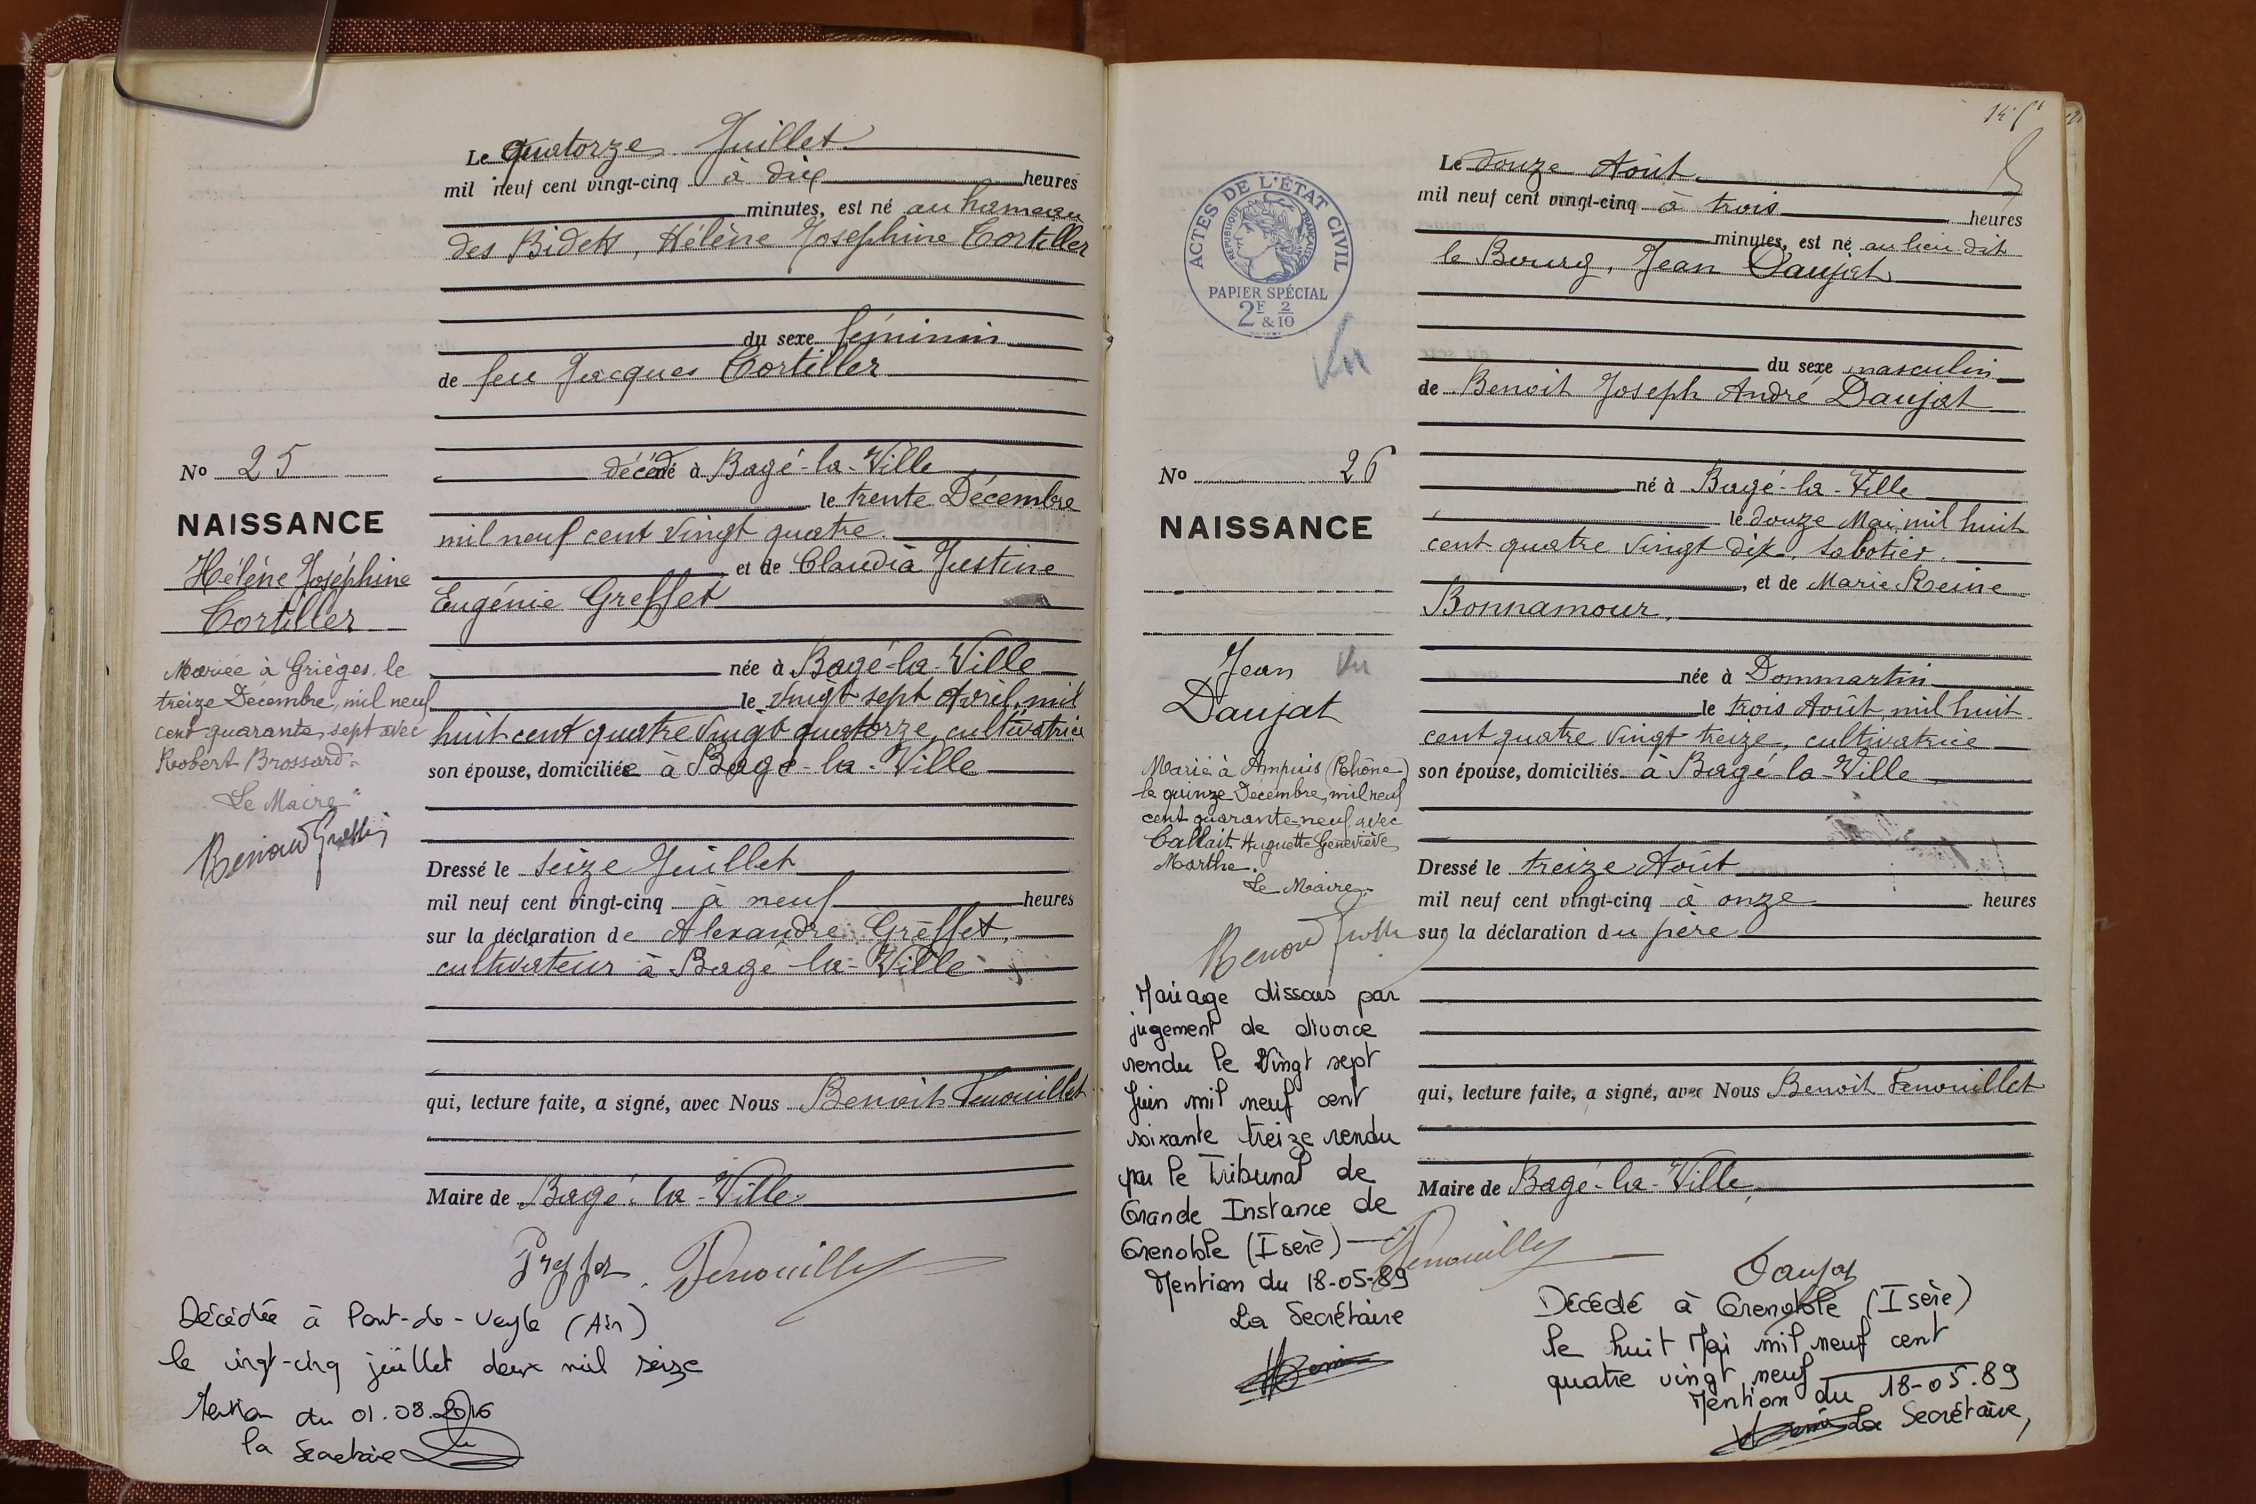 Le quatorze Juillet
mil neuf cent vingt-cinq à dix heures
minutes, est né au hameau
des Bidets, Hélène Joséphine Cortiller
du sexe féminin
de feu Jacques Cortiller
décédé à Bagé-la-Ville
le trente Décembre
mil neuf cent vingt quatre
et de Claudia Justine
Eugénie Greffet
née à Bagé-la-Ville
le vingt sept Avril mil
huit cent quatre vingt quatorze, cultivatrice
son épouse, domiciliée à Bagé-la-Ville
Dressé le seize Juillet
mil neuf cent vingt-cinq à neuf heures
sur la déclaration de Alexandre Greffet,
cultivateur à Bagé-la-Ville
qui, lecture faite, a signé, avec Nous Benoit Fenouillet
Maire de Bagé-la-Ville
Greffet Fenouillet
No 25
NAISSANCE
Hélène Joséphine
Cortiller
Mariée à Grièges le
treize Décembre, mil neuf
cent quarante sept avec
Robert Brossard.
Le Maire
Renoud
Décédée à Pont-de-Veyle (Ain)
le vingt-cinq juillet deux mil seize
Mention du 01.08.2016
la Secrétaire
Le douze Août
mil neuf cent vingt-cinq à trois heures
minutes, est né au lieu dit
le Bourg, Jean Daujat
du sexe masculin
de Benoit Joseph André Daujat
né à Bagé-la-Ville
le douze Mai mil huit
cent quatre vingt dix, sabotier.
, et de Marie Reine
Bonnamour,
née à Dommartin
le trois Août mil huit
cent quatre vingt treize, cultivatrice
son épouse, domiciliés à Bagé-la-Ville
Dressé le treize Août
mil neuf cent vingt-cinq à onze heures
sur la déclaration du père
qui, lecture faite, a signé, avec Nous Benoit Fenouillet
Maire de Bagé-la-Ville,
Fenouillet Daujat
ACTES DE L'ÉTAT CIVIL
RÉPUBLIQUE FRANÇAISE
PAPIER SPÉCIAL
2F 2
& 10
Vu
No 26
NAISSANCE
Jean Vu
Daujat
Marié à Ampuis (Rhône)
le quinze Décembre, mil neuf
cent quarante-neuf avec
Callait Huguette Geneviève
Marthe.
Le Maire
Renoud
Mariage dissous par
jugement de divorce
rendu le vingt sept
Juin mil neuf cent
soixante treize rendu
par le Tribunal de
Grande Instance de
Grenoble (Isère)
Mention du 18-05-89
La Secrétaire
Décédé à Grenoble (Isère)
le huit Mai mil neuf cent
quatre vingt neuf
Mention du 18-05.89
La Secrétaire,